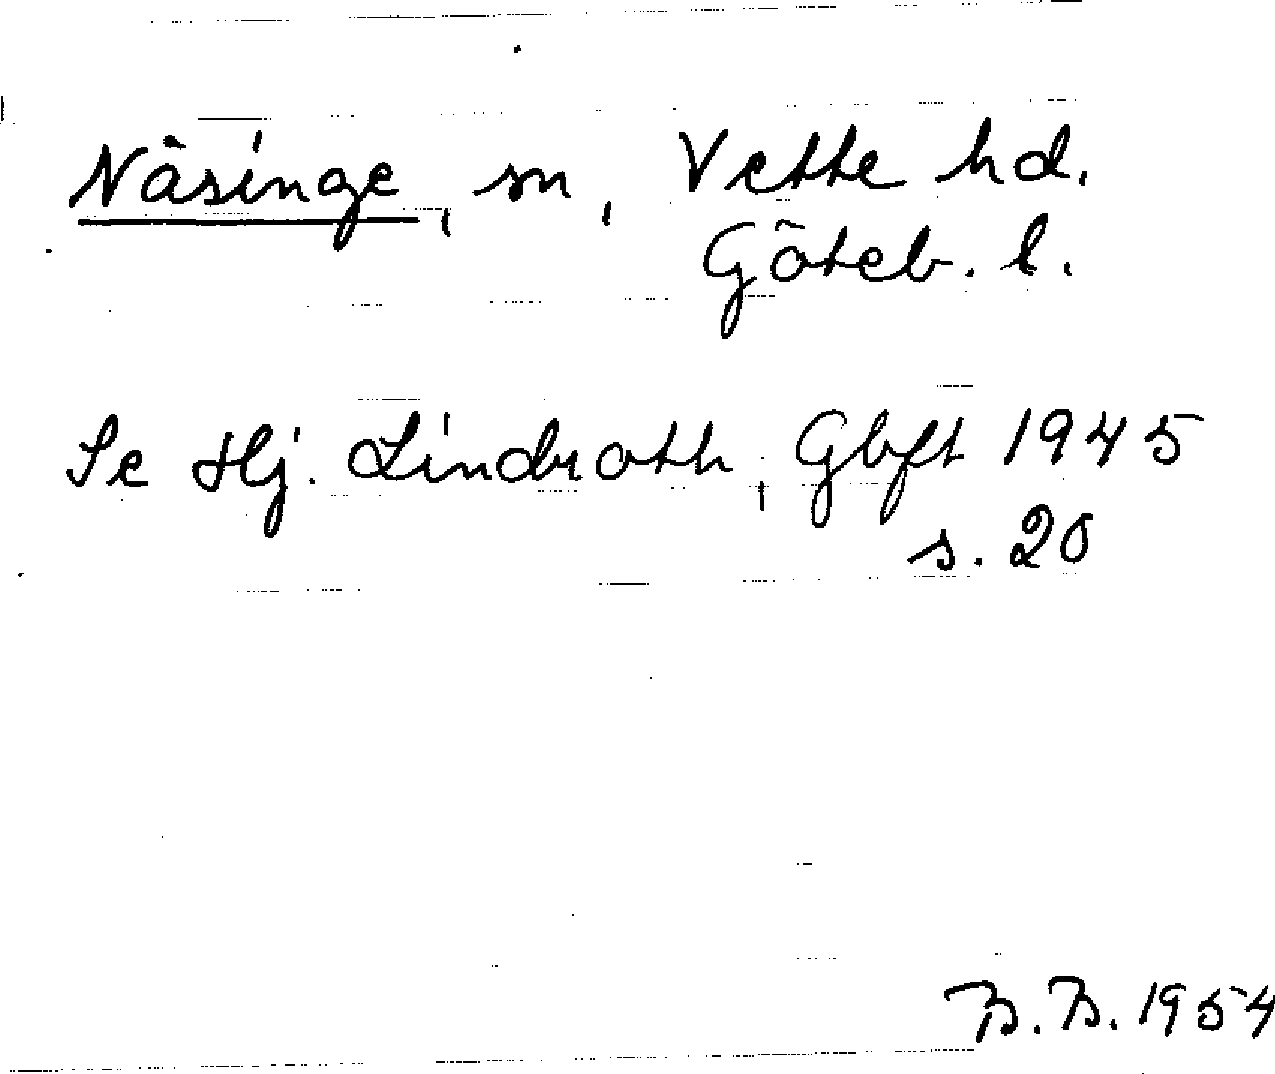 Näsinge, sn, Vette hd.
Göteb. l.
Se Hj. Lindroth, Gbft 1945
s. 20
B.B. 1954